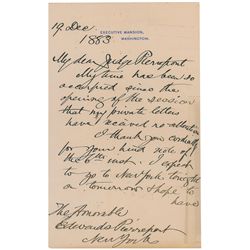 19 Dec.
1883
EXECUTIVE MANSION,
WASHINGTON.
My dear Judge Pierrepont
My time has been so
occupied since the
opening of the session
that my private letters
have received no attention
I thank you cordially
for your kind note of
the 6th inst. I expect
to go to New York tonight
or tomorrow & hope to
have
The Honorable
Edwards Pierrepont
New York